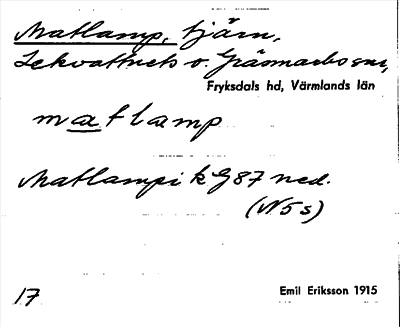 Matlamp, tjärn,
Lekvattnets o. Gräsmarks snr,
Fryksdals hd, Värmlands län
matlamp
Matlampi k G87 ned.
(N5s)
17
Emil Eriksson 1915